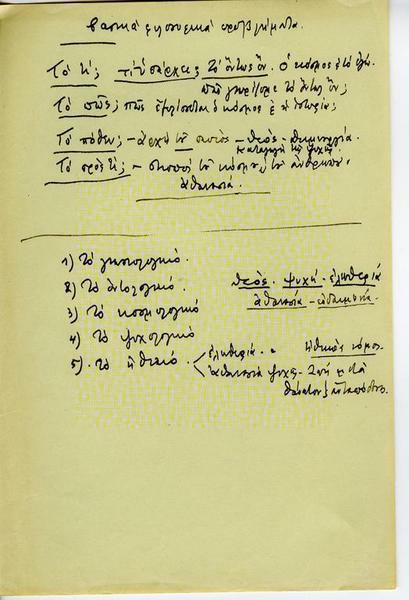 βασικά φιλοσοφικά προβλήματα.
Τό τί; τί ὑπάρχει; τό ὄντως ὄν. Ὁ κόσμος ἤ τό ἐγώ.
πῶς γνωρίζομε τό ὄντως ὄν;
Τό πῶς; πῶς ἐξελίσσεται ὁ κόσμος ἤ ἡ ἱστορία;
Τό πόθεν; - ἀρχή τοῦ παντός - θεός - δημιουργία.
καταγωγή τῆς ψυχῆς.
Τό πρός τί; - σκοπός τοῦ κόσμου, τοῦ ἀνθρώπου.
ἀθανασία.
1) τό γνωσιολογικό.
2) τό ὀντολογικό.
θεός - ψυχή - ἐλευθερία
ἀθανασία - εὐδαιμονία.
3) τό κοσμολογικό
4) τό ψυχολογικό
5). τό ἠθικό
ἐλευθερία. ἠθικός νόμος.
ἀθανασία ψυχῆς - ζωή μετά
θάνατον ἀνταπόδοση.